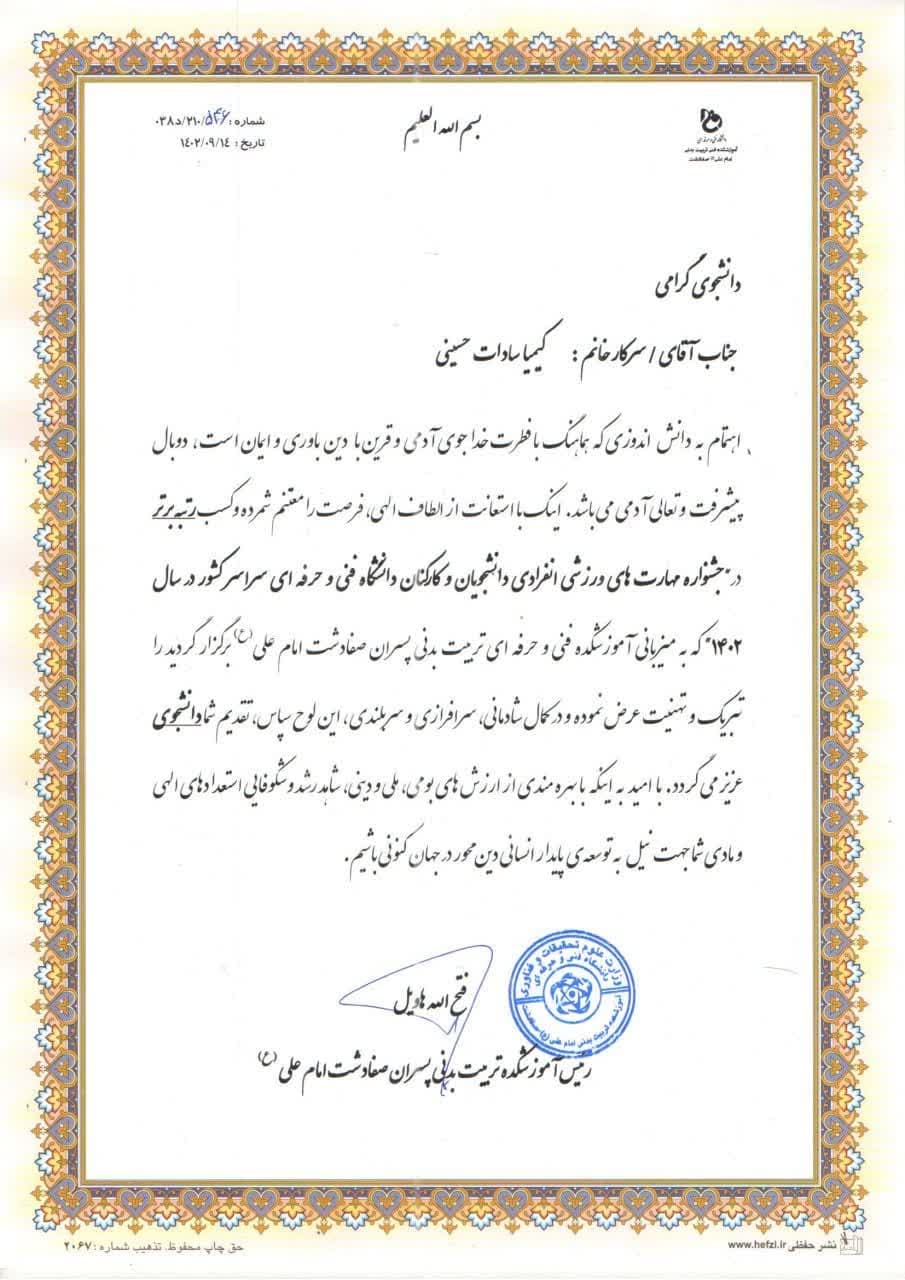 بسم الله العلیم
دانشگاه فنی و حرفه ای
آموزشکده فنی تربیت بدنی
امام علی (ع) صفادشت
شماره: ۵۴۶/۲۱۰/د۰۳۸
تاریخ: ۱۴۰۲/۰۹/۱۴
دانشجوی گرامی
جناب آقای / سرکار خانم: کیمیا سادات حسینی
اهتمام به دانش اندوزی که هماهنگ با فطرت خداجوی آدمی و قرین با دین باوری و ایمان است، دو بال
پیشرفت و تعالی آدمی می باشد. اینک با استعانت از الطاف الهی، فرصت را مغتنم شمرده و کسب رتبه برتر
در "جشنواره مهارت های ورزشی انفرادی دانشجویان و کارکنان دانشگاه فنی و حرفه ای سراسر کشور در سال
۱۴۰۲" که به میزبانی آموزشکده فنی و حرفه ای تربیت بدنی پسران صفادشت امام علی (ع) برگزار گردید را
تبریک و تهنیت عرض نموده و در کمال شادمانی، سرافرازی و سربلندی، این لوح سپاس، تقدیم شما دانشجوی
عزیز می گردد. با امید به اینکه با بهره مندی از ارزش های بومی، ملی و دینی، شاهد رشد و شکوفایی استعدادهای الهی
و مادی شما جهت نیل به توسعه ی پایدار انسانی دین محور در جهان کنونی باشیم.
وزارت علوم تحقیقات و فناوری
دانشگاه فنی و حرفه ای
آموزشکده تربیت بدنی امام علی (ع) صفادشت
فتح الله هاویل
رئیس آموزشکده تربیت بدنی پسران صفادشت امام علی (ع)
نشر حفظی www.hefzi.ir
حق چاپ محفوظ. تذهیب شماره: ۲۰۶۷